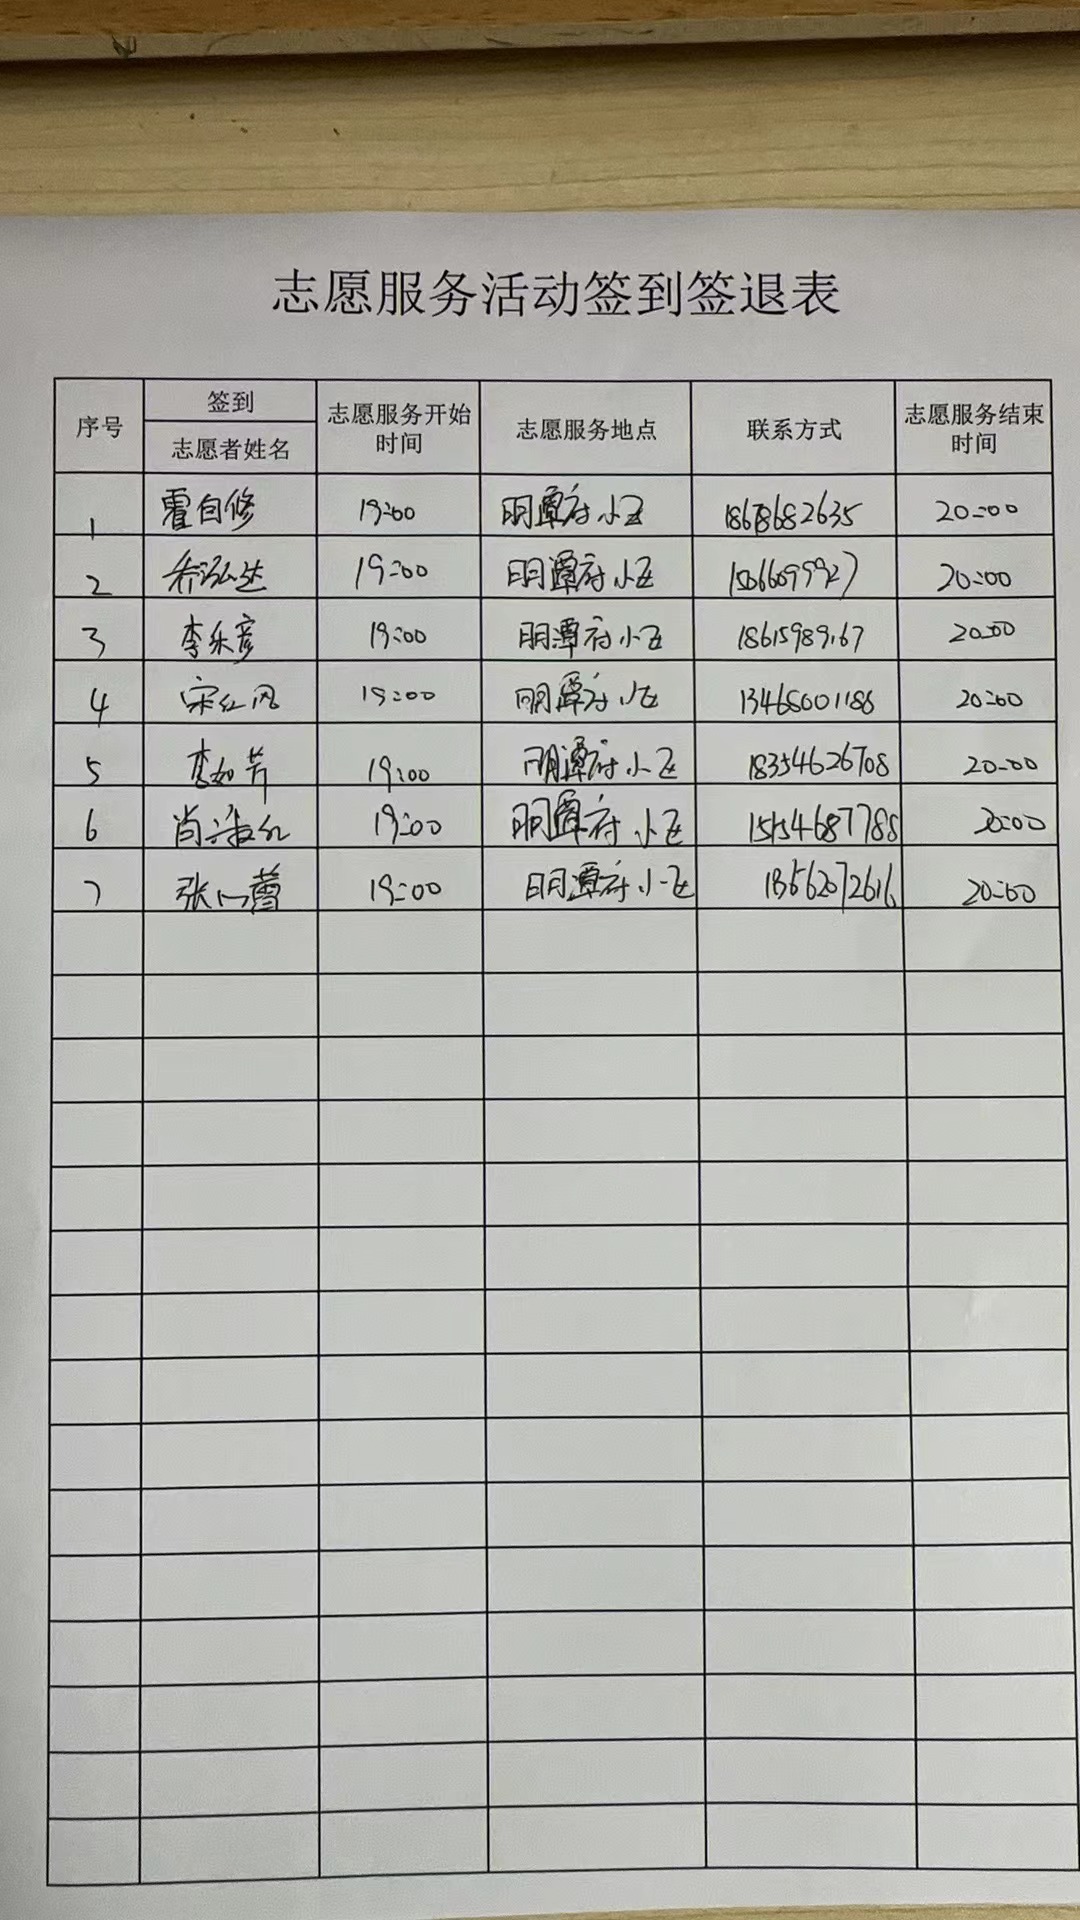 志愿服务活动签到签退表
序号 签到 志愿者姓名 志愿服务开始时间 志愿服务地点 联系方式 志愿服务结束时间
1 霍自修 19:00 明潭府小区 18678682635 20:00
2 乔泓达 19:00 明潭府小区 15066099927 20:00
3 李乐彦 19:00 明潭府小区 18615989167 20:00
4 宋红风 19:00 明潭府小区 13468001188 20:00
5 李如芳 19:00 明潭府小区 18354626708 20:00
6 肖淑红 19:00 明潭府小区 15154687788 20:00
7 张心蕾 19:00 明潭府小区 13562072616 20:00